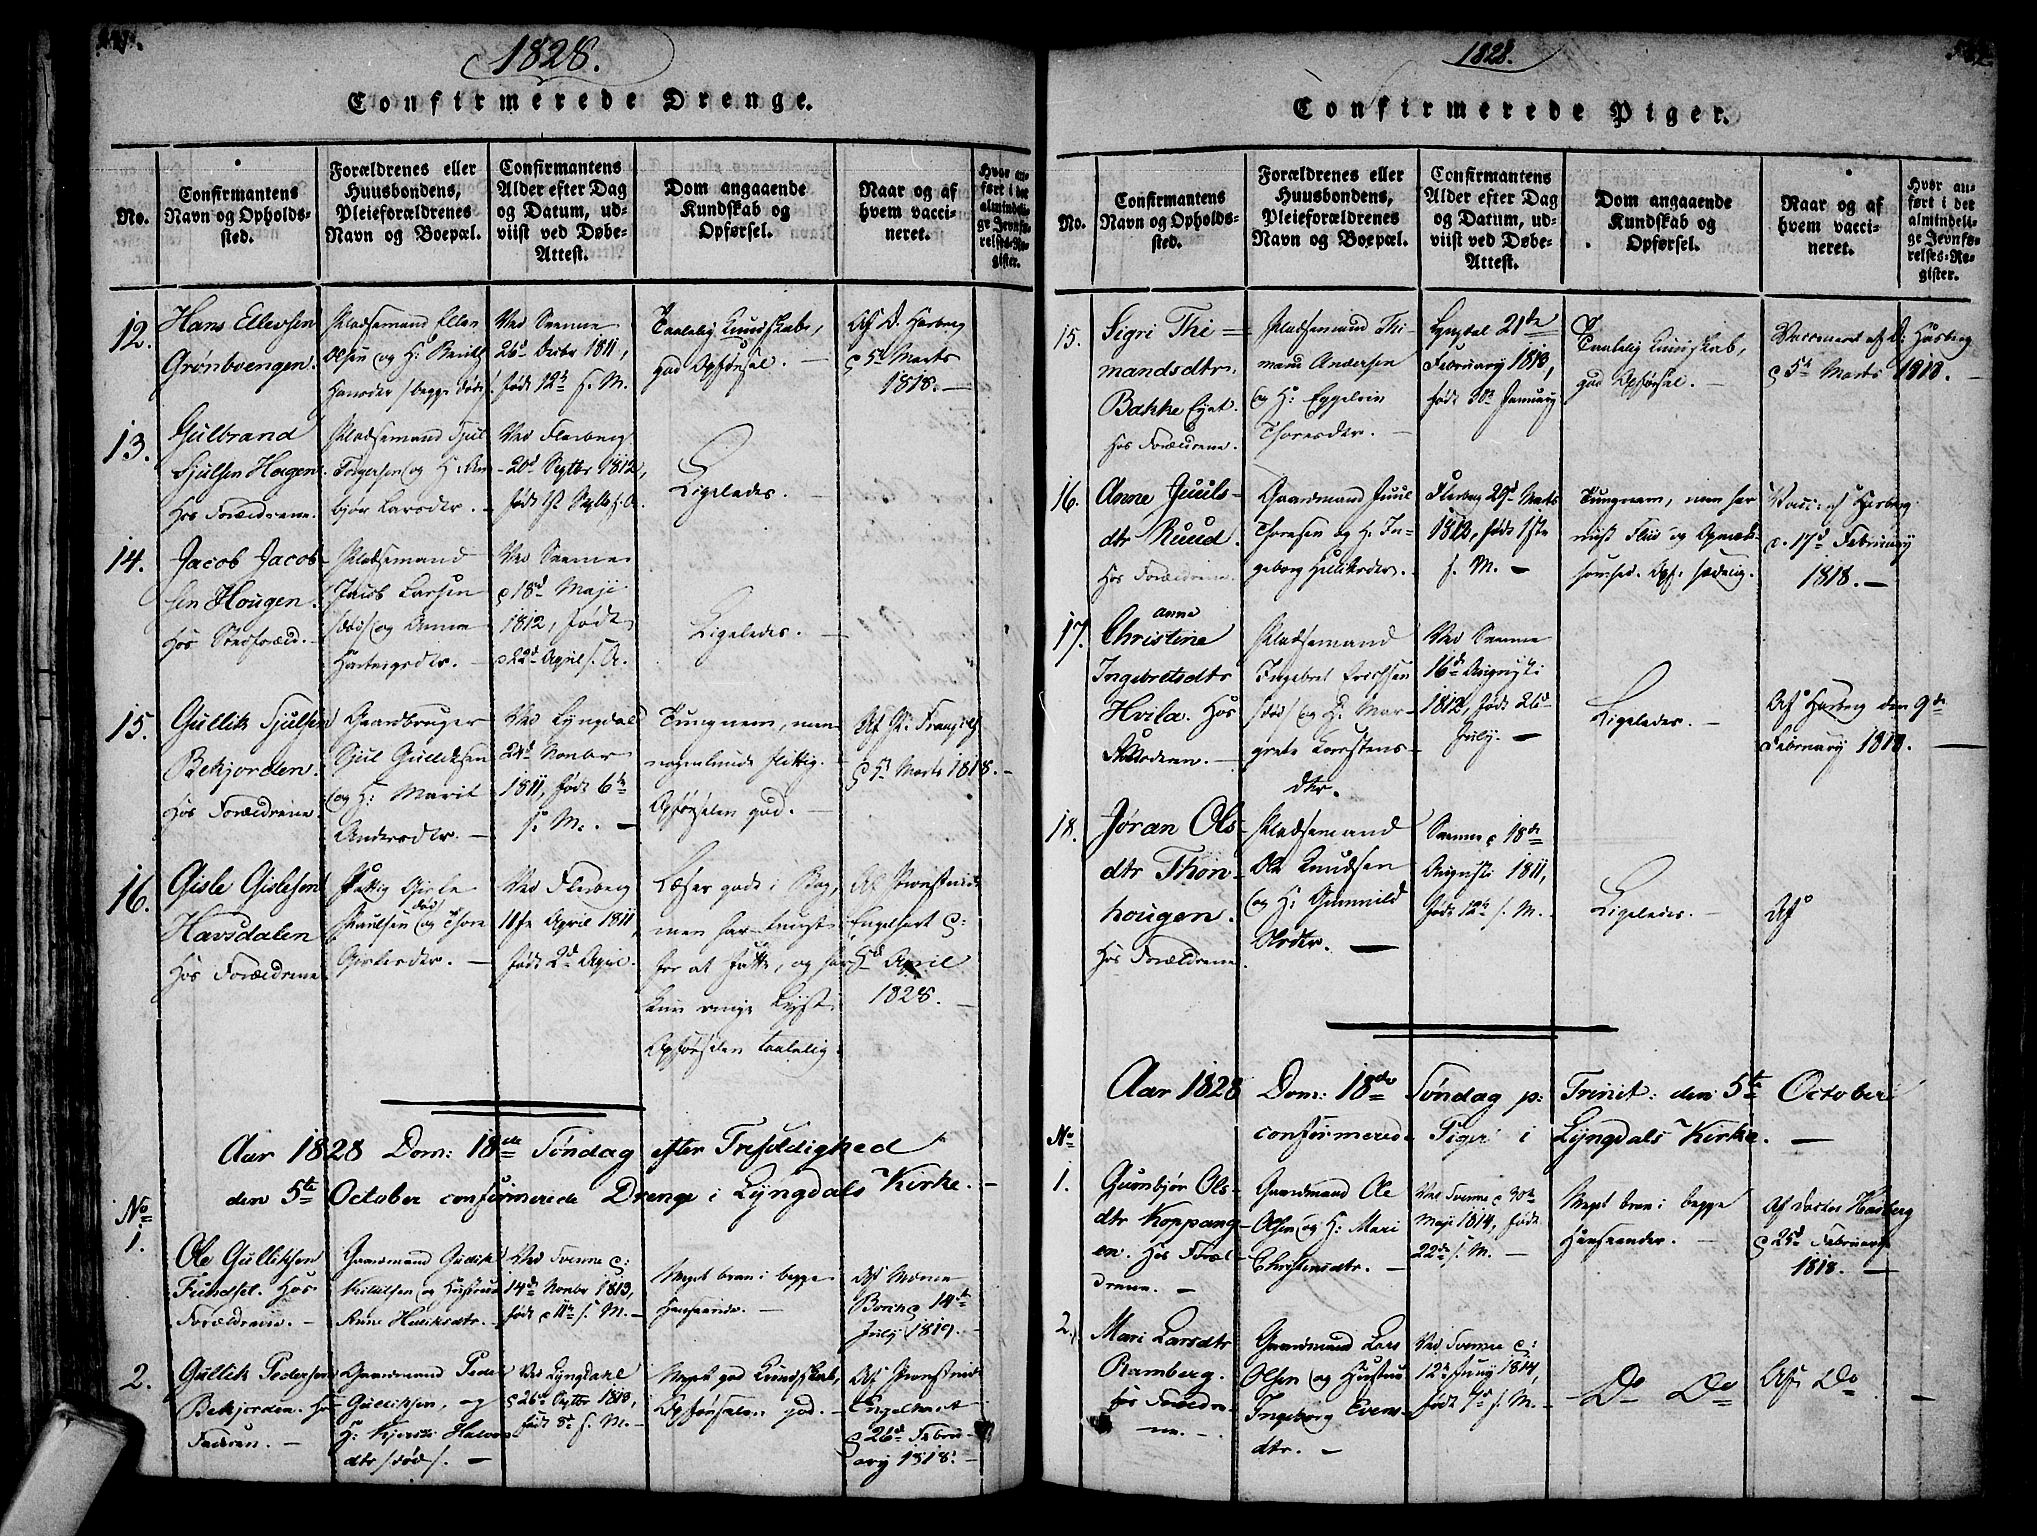 1828.
Confirmerede Drenge.
No.
Confirmantens
Navn og Opholds-
sted.
Forældrenes eller
Huusbondens,
Pleieforældrenes
Navn og Boepæl.
Confirmantens
Alder efter Dag
og Datum, ud-
viist ved Døbe-
Attest.
Dom angaaende
Kundskab og
Opførsel.
Naar og af
hvem vacci-
neret.
Hvor an-
ført i det
almindeli-
ge Jevnfø-
relses-Re-
gister.
12.
Hans Ellevsen
Grønbvengen.
Pladsemand Ellen
Olsen og H: Berith
Hansdtr /begge døde/.
Ved Svenne
26d Decbr 1811,
født 12te s. M.
Taalelig Kundskab,
god Opførsel. —
Af D. Harberg
d 5d Marts
1818. —
13.
Gulbrand
Sjulsen Hagen.
Hos Forældrene.
Pladsemand Sjul
Torgersen og H:
bjør Larsdtr. —
Ved Flesberg
20d Septbr 1812,
født
Ligeledes. —
14.
Jacob Jacob-
sen Hougen.
Hos Stedforæld. —
Pladsemand
Jacob Larsen
/død/ og Anne
Hartvigsdtr. —
Ved Svenne
d 18d Maji
1812, født
d 22d April s. A.
Ligeledes. —
15.
Gullik Sjulsen
Bekjorden.
Hos Forældrene.
Gaardbruger
Sjul Gulliksen
og H: Marit
Andersdtr. —
Ved Lyngdal
24d Novbr
1811, født 6te
s. M. —
Tungnem, men
nogenlunde flittig.
Opførselen god. —
Af
d 5d Marts 1818. —
16.
Gisle Gislesen
Havsdalen
Hos Forældrene.
Gisle
Paulsen /død/ og Thore
Gislesdtr. —
Ved Flesberg
11te April 1811,
født 2d April.
Læser godt i Bog,
men har tungt
for at fatte, og har
kun ringe Lyst.
Opførselen taalelig.
Af Provstinde
Engelhart d:
5d April
1828. —
Aar 1828 Dom: 18de Søndag efter Trefoldighed
den 5te October confirmerede Drenge i Lyngdals Kirke. —
No
1.
Ole Gulliksen
Fundset. Hos
Forældrene. —
Gaardmand Gullik
Kittilsen og Hustrue
Anne Helliksdtr. —
Ved Svenne d:
14de Novbr 1813,
født d 11te s. M. —
Meget brav i begge
Henseender. —
Af Mome
Boring 14de
July 1819. —
2.
Gullik Pedersen
Bekjorden. Hos
Faderen. —
Gaardmand Peder
Gulliksen, og
H: Kjersti Halvors
dtr /død/. —
Ved Lyngdahl
d 26de Septbr 1813,
født 8d s. M. —
Meget god Kundskab,
Opførselen god. —
Af Provstinde
Engelhart
d 26d Febru-
ary 1818. —
1828.
Confirmerede Piger.
No.
Confirmantens
Navn og Opholds-
sted.
Forældrenes eller
Huusbondens,
Pleieforældrenes
Navn og Boepæl.
Confirmantens
Alder efter Dag
og Datum, ud-
viist ved Døbe-
Attest.
Dom angaaende
Kundskab og
Opførsel.
Naar og af
hvem vacci-
neret.
Hvor an-
ført i det
almindeli-
ge Jevnfø-
relses-Re-
gister.
15.
Sigri Thi =
mandsdtr.
Bakke Eyet.
Hos Forældrene.
Pladsemand Thi
mand Andersen
og H: Eggelein
Thoresdtr. —
Lyngdal 21de
February 1813,
født 30te January
Taalelig Kundskab,
god Opførsel. —
Vaccineret af D: Harberg
d 5te Marts 1818. —
16.
Anne Juuls-
dtr Ruud.
Hos Forældrene.
Gaardmand Juul
Thoresen og H. In-
geborg Helliksdtr. —
Flesberg 29d Marts
1812, født 1ste
s. M. —
Tungnem, men har
viist Flid og Opmærk-
somhed. Opf: sædelig.
Vacc: af Harberg
d. 17d February
1818. —
17.
anne
Christine
Ingebretsdtr
Hvila. Hos
Moderen. —
Pladsemand
Ingebret Erichsen
/død/ og H. Mar-
grete Karstens-
dtr.
Ved Svenne
16d Augusti
1812, født 26d
July. —
Ligeledes. —
Af Harberg den 9de
February 1818. —
18.
Jøran Ols
dtr Thon-
hougen.
Hos Forældrene.
Pladsemand
Ole Knudsen
og H: Gunnild
Olsdtr. —
Svenne d 18de
Augusti 1811,
født 12te s. M. —
Ligeledes. —
Af
Aar 1828 Dom: 18de Søndag p: Trinit: den 5te October
confirmerede Piger i Lyngdals Kirke. —
No
1.
Gunbjør Ols-
dtr Koppang-
en. Hos Foræl-
drene. —
Gaardmand Ole
Olsen og H: Mari
Christensdtr. —
Ved Svenne d 30te
Maji 1814, født
22de s. M. —
Meget brav i begge
Henseender. —
Af Doctor Harberg
d 25d February
1818. —
2.
Mari Larsdtr
Ramberg.
Hos Forældre-
ne. —
Gaardmand Lars
Olsen og Hustrue
Ingeborg Evens-
dtr. —
Ved Svenne d:
12te Juny 1814,
født 7d s. M. —
— Do Do
Af Do —